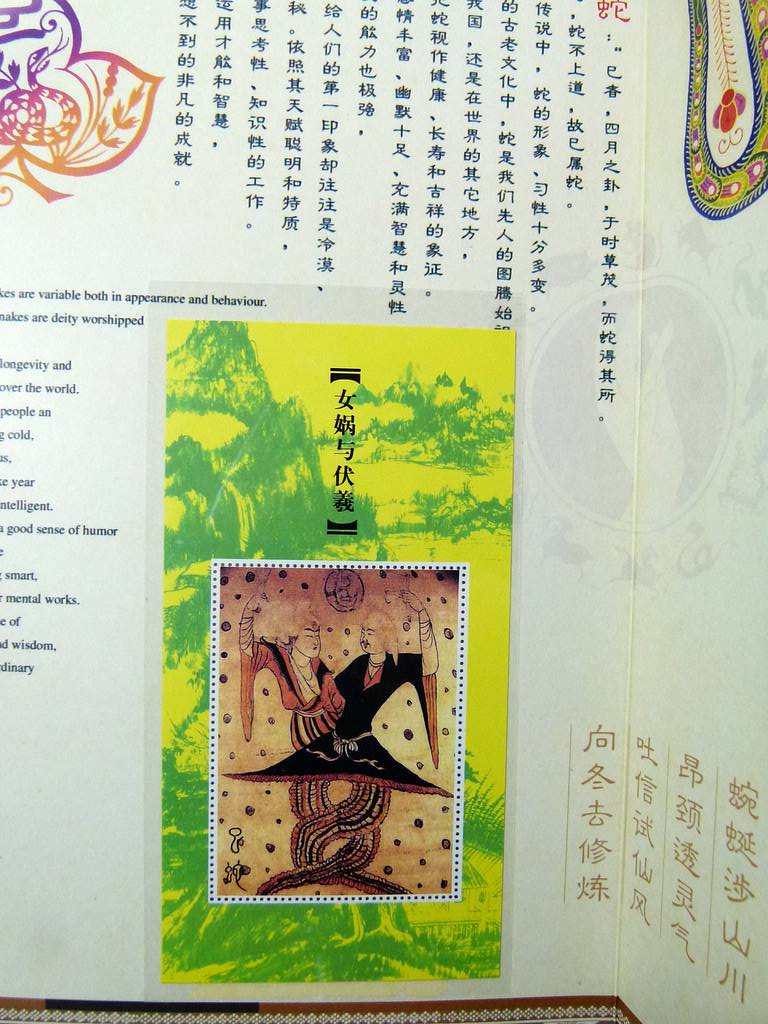 蛇："巳者，四月之卦，于时草茂，而蛇得其所。
，蛇不上道，故巳属蛇。
传说中，蛇的形象、习性十分多变。
的古老文化中，蛇是我们先人的图腾始
我国，还是在世界的其它地方，
把蛇视作健康、长寿和吉祥的象征。
感情丰富、幽默十足、充满智慧和灵性
的能力也极强，
给人们的第一印象却往往是冷漠、
秘。依照其天赋聪明和特质，
事思考性、知识性的工作。
运用才能和智慧，
想不到的非凡的成就。
kes are variable both in appearance and behaviour.
nakes are deity worshipped
longevity and
over the world.
people an
g cold,
us,
ke year
ntelligent.
a good sense of humor
e
g smart,
r mental works.
e of
nd wisdom,
rdinary
【女娲与伏羲】
巳蛇
蜿蜒涉山川
昂颈透灵气
吐信试仙风
向冬去修炼